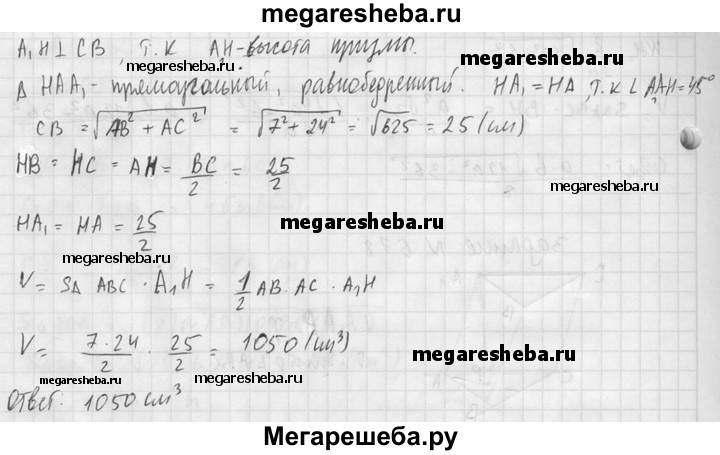 megaresheba.ru
A₁H ⊥ CB , т.к AH-высота призмы.
megaresheba.ru
megaresheba.ru
Δ HAA₁ - прямоугольный, равнобедренный. HA₁ = HA , т.к ∠ A₁AH = 45°
CB = √AB² + AC² = √7² + 24² = √625 = 25 (см)
HB = HC = AH = BC/2 = 25/2
megaresheba.ru
megaresheba.ru
HA₁ = HA = 25/2
megaresheba.ru
V = SΔ ABC · A₁H = 1/2 AB · AC · A₁H
V = 7·24/2 · 25/2 = 1050 (см³)
megaresheba.ru
megaresheba.ru
Ответ. 1050 см³
megaresheba.ru
Мегарешеба.ру